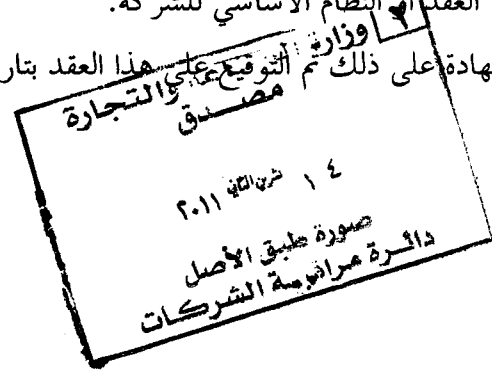 العقد أو النظام الأساسي للشركة.
هادة على ذلك تم التوقيع على هذا العقد بتار
٢
وزارة الصناعة والتجارة
مصدق
١٤ تشرين الثاني ٢٠١١
صورة طبق الأصل
دائرة مراقبة الشركات